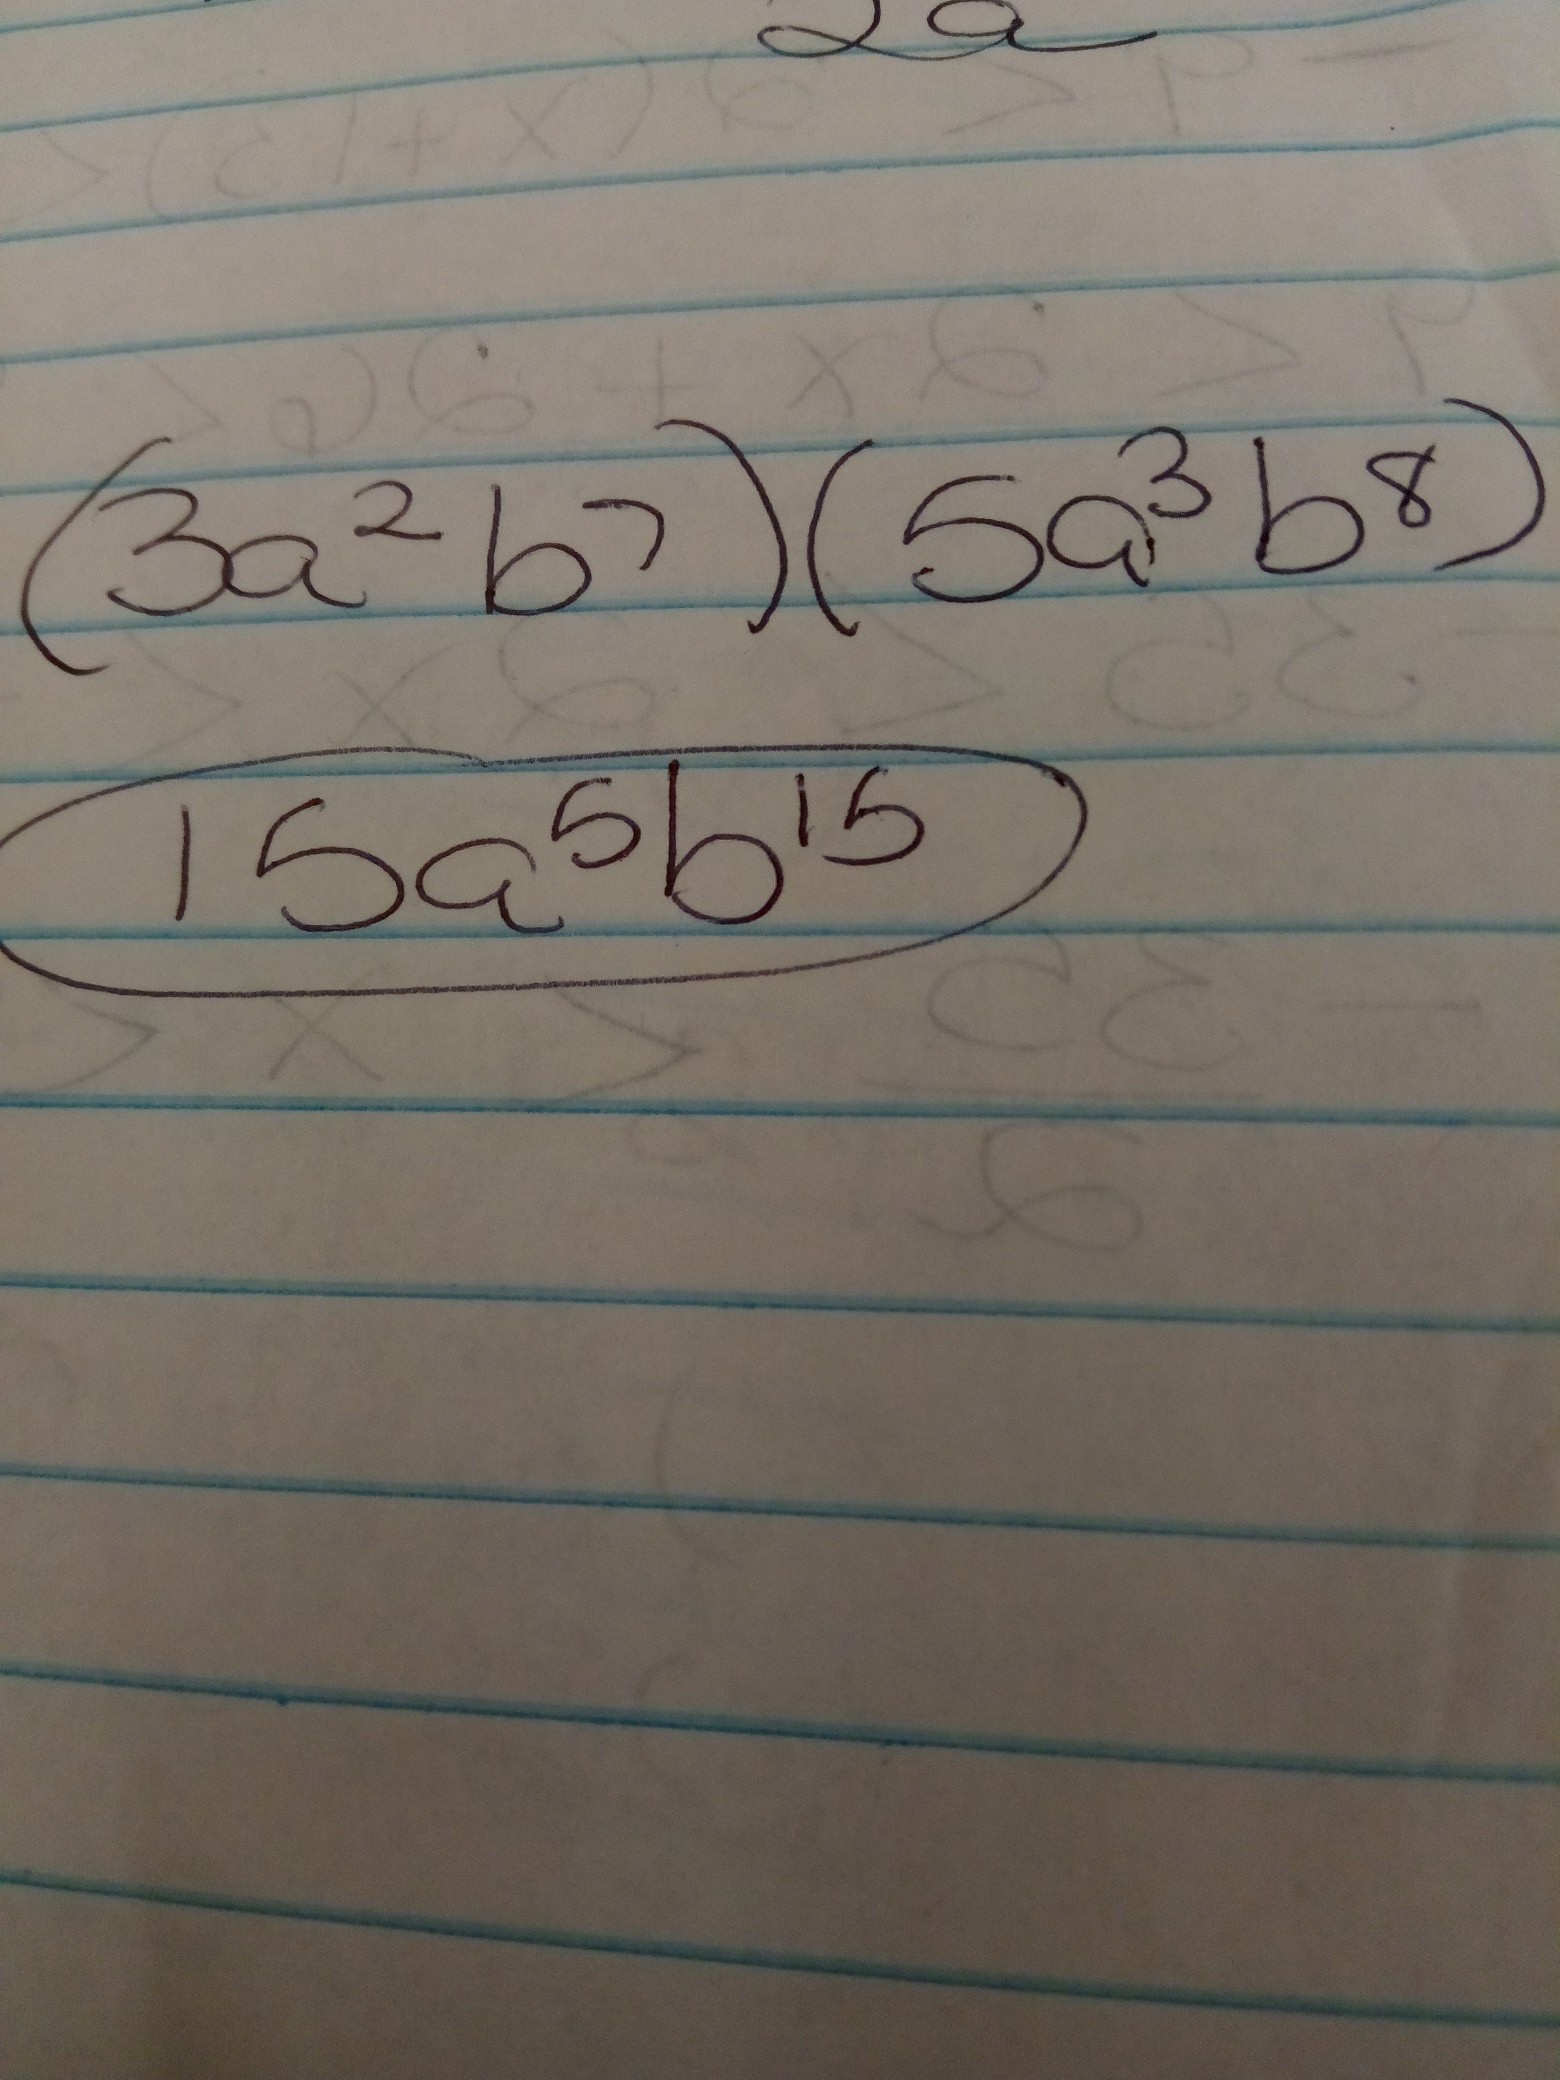 2a
(3a²b⁷)(5a³b⁸)
15a⁵b¹⁵